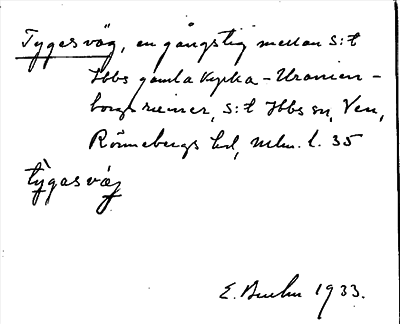 Tygas väg, en gångstig mellan S:t
Ibbs gamla kyrka - Uranien-
borgs ruiner, S:t Ibbs sn, Ven,
Rönnebergs hd, Mlm. l. 35
tỳgas väg
E. Buhr 1933.